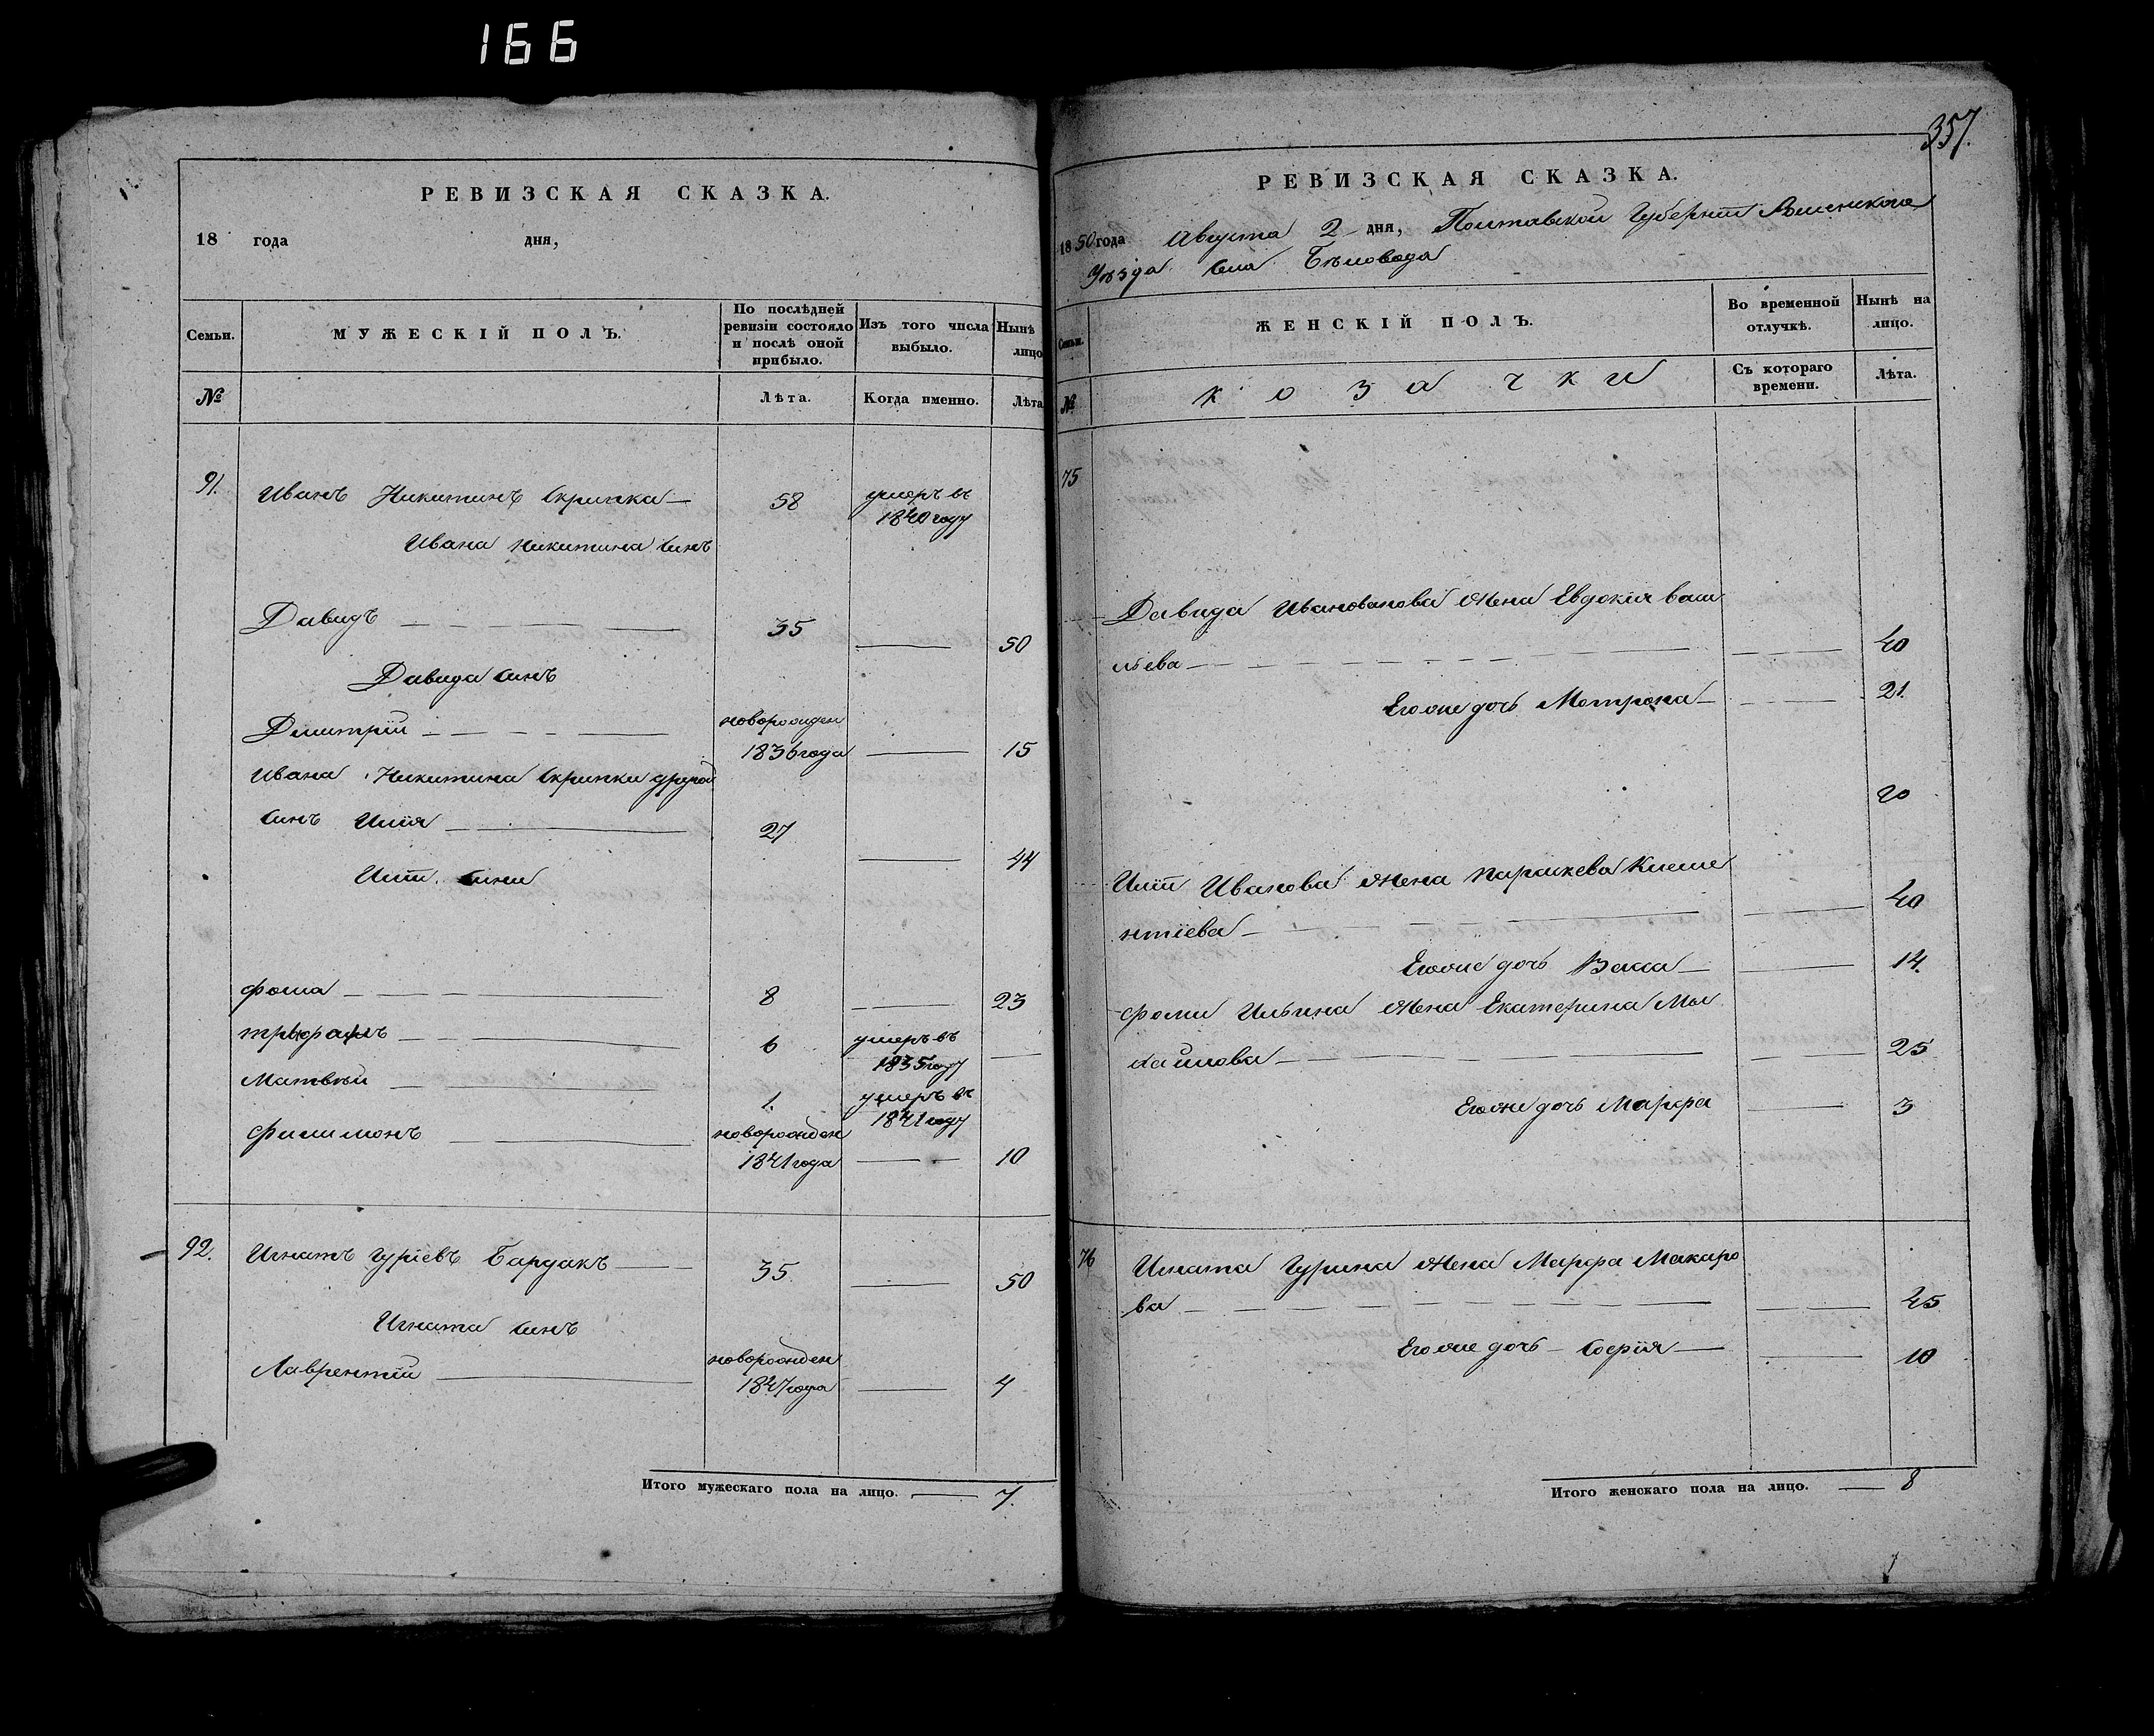 166
РЕВИЗСКАЯ СКАЗКА.
18 года дня,
Семьи.
МУЖЕСКІЙ ПОЛЪ.
По послѣдней ревизіи состояло и послѣ оной прибыло.
Изъ того числа выбыло.
Нынѣ лицо
№
Лѣта.
Когда именно.
Лѣта
91. Иванъ Никитинъ Скрипка 58 умеръ въ
1840 году
Ивана Никитина синъ
Давидъ 35 50
Давида синъ
Дмитрій новорожден
1836 года 15
Ивана Никитина Скрипки другой
синъ Илія 27 44
Иліи сини
Фома 8 23
Трифанъ 6 умеръ въ
1835 году
Матвѣй 1. умеръ въ
1841 году
Филимонъ новорожден
1841 года 10
92. Игнатъ Гуріевъ Бардакъ 35 50
Игната синъ
Лаврентій новорожден
1847 года 4
Итого мужескаго пола на лицо. 7.
357.
РЕВИЗСКАЯ СКАЗКА.
1850 года Августа 2 дня, Полтавской Губерніи Роменского
Уѣзда села Бѣловода
Семьи.
ЖЕНСКІЙ ПОЛЪ.
Во временной отлучкѣ.
Нынѣ на лицо.
№
козачки
Съ котораго времени.
Лѣта.
75
Давида Ивановапова жена Евдокія Васи
лієва 40
Его же дочь Мотрона 21.
20
Иліи Иванова жена Параскева Клеме
нтіева 40
Его же дочь Васса 14.
Фоми Ильина жена Екатерина Ми
хайлова 25
Его же дочь Марфа 3
76 Игната Гурина жена Марфа Макаро
ва 45
Его же дочь София 10
Итого женскаго пола на лицо. 8